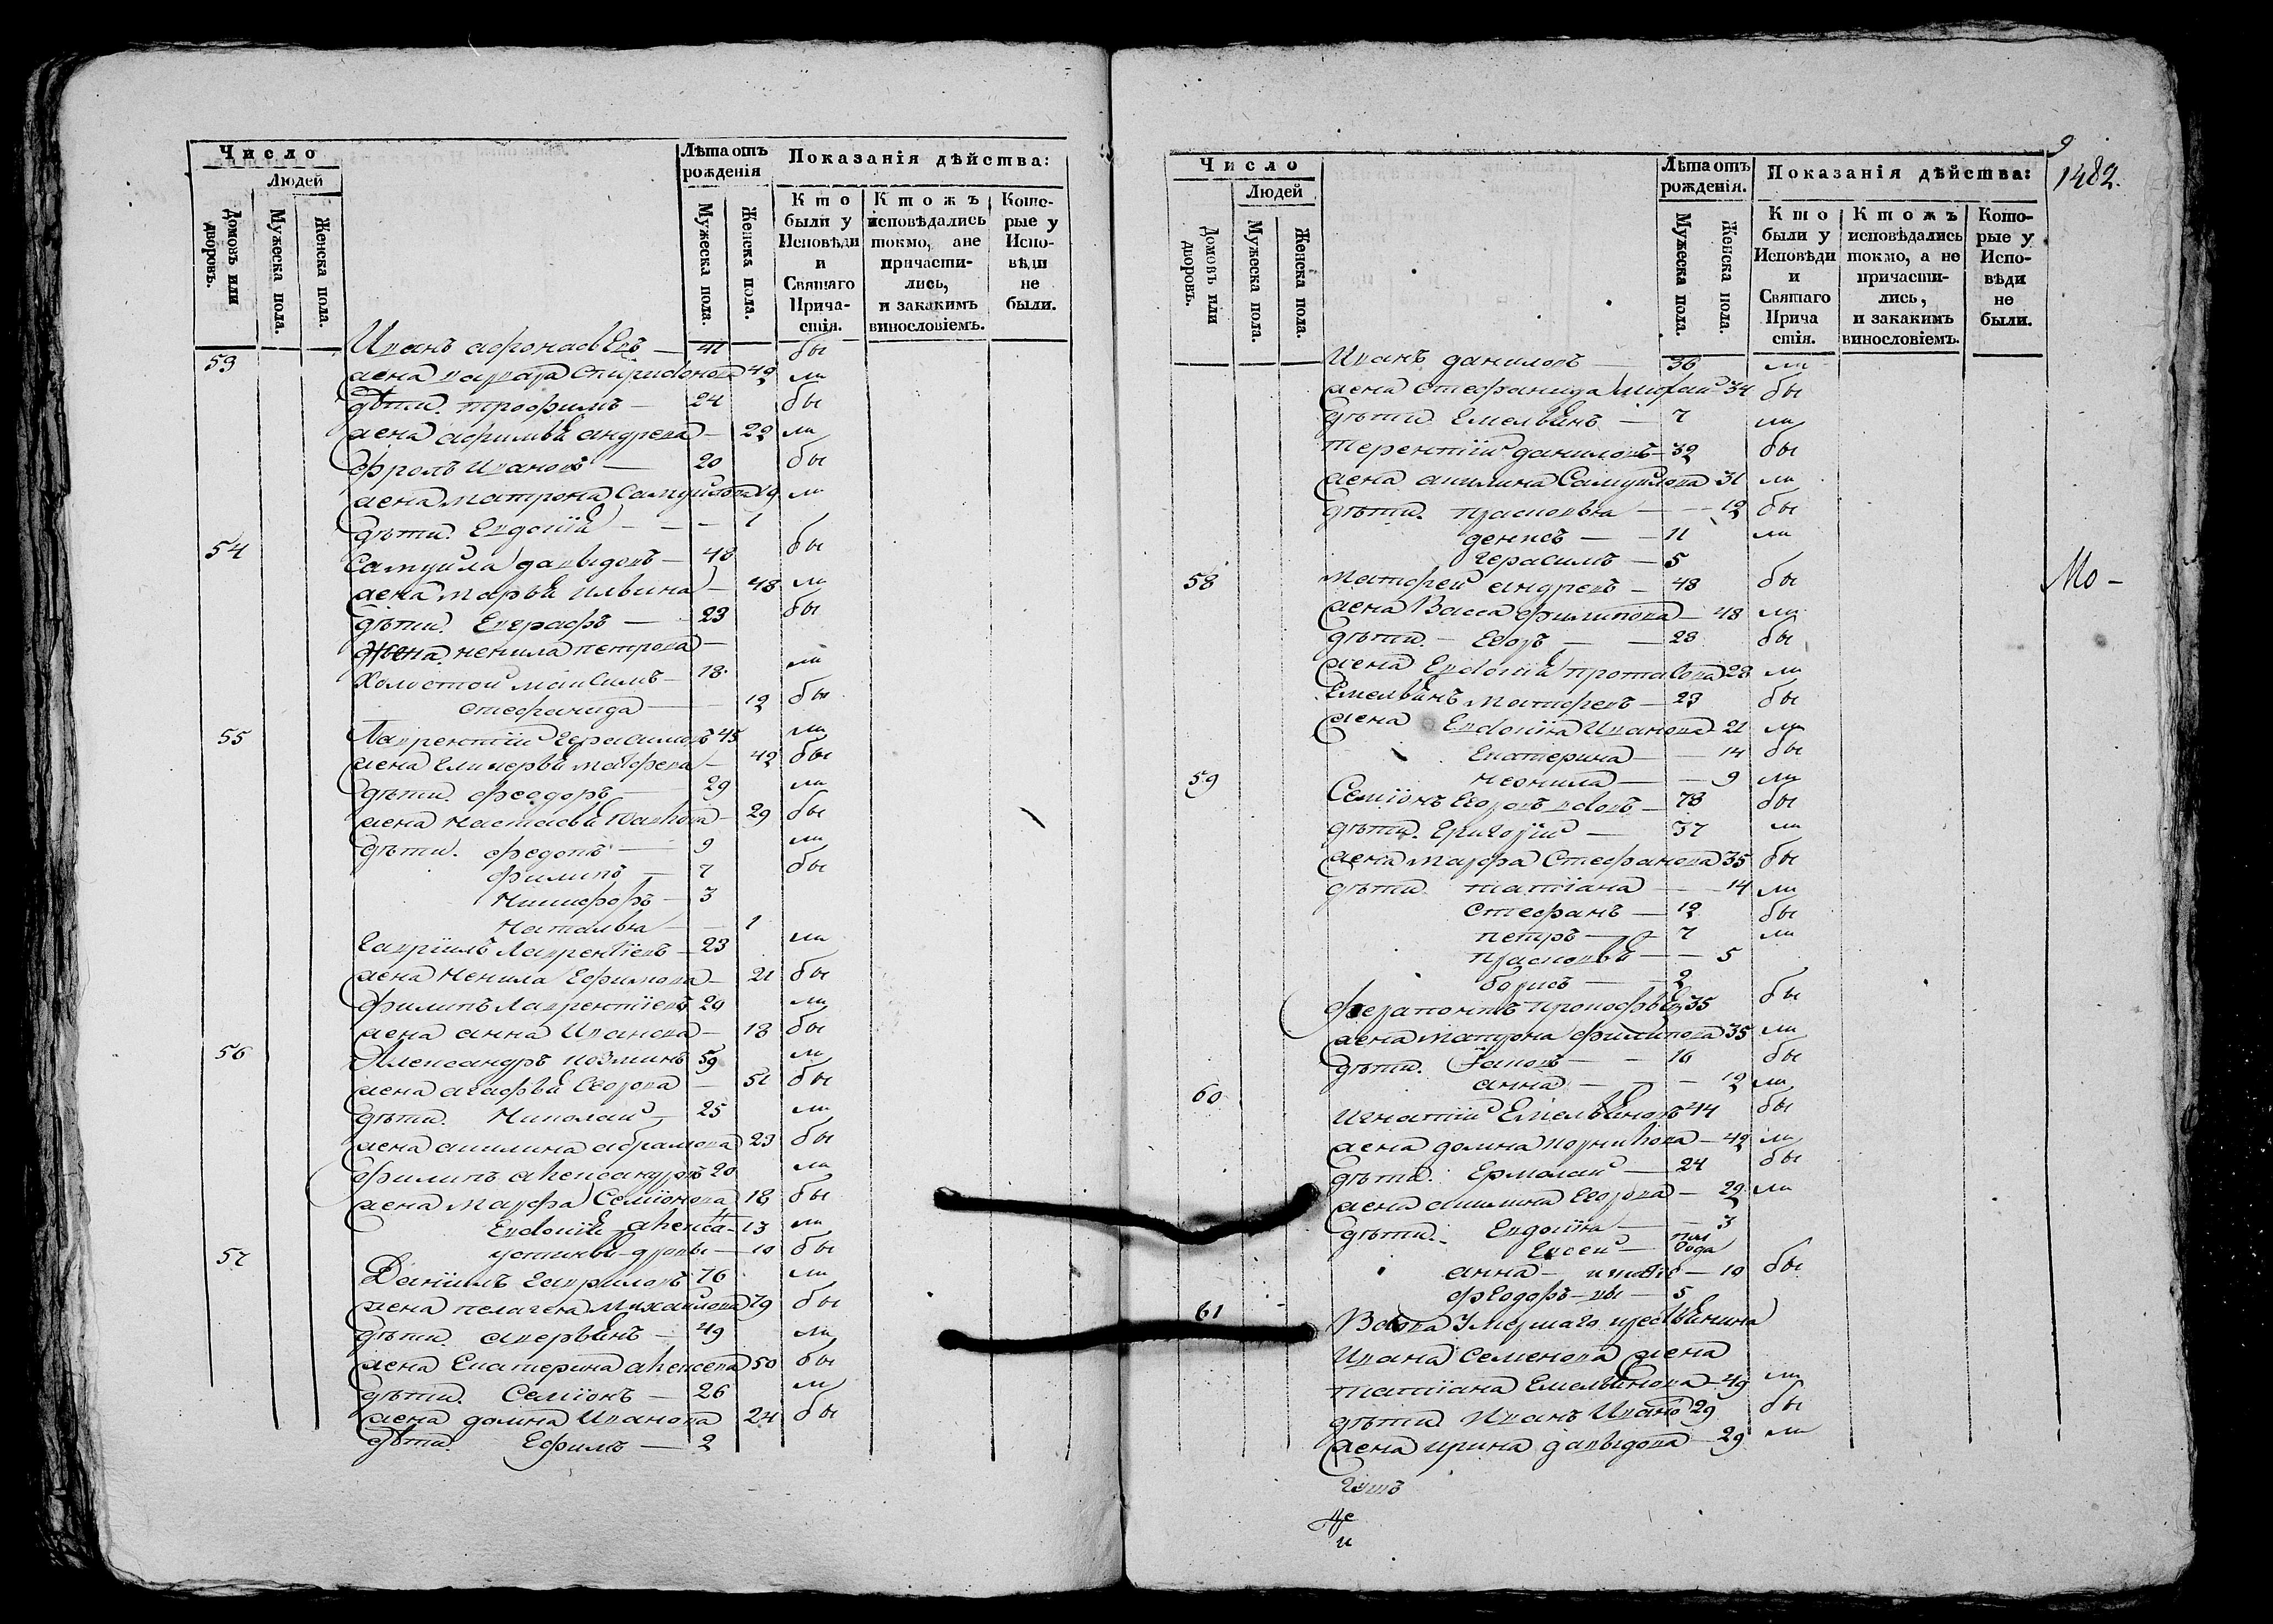 Число
Людей
Домовъ или дворовъ.
Мужеска пола.
Женска пола.
Лѣта отъ рожденія
Мужеска пола.
Женска пола.
Показанія дѣйства:
Кто были у Исповѣди и Святаго Прича-стія.
Ктожъ исповѣдались токмо, а не причасти-лись, и закакимъ винословіемъ.
Кото-рые у Испо-вѣди не были.
53 Иванъ афонасьевъ — 41 бы
жена варвара Спиридонова 42 ли
дѣти. трофимъ — 24 бы
жена афимья андрева — 22 ли
фролъ Ивановъ — 20 бы
жена матрона Самуилова 19 ли
дѣти. Евдокія — 1
54 Самуила давыдовъ — 48 бы
жена марья ильина — 48 ли
дѣти. Евграфъ — 23 бы
жена ненила петрова —
холостой максимъ — 18 ли
стефанида — 12 бы
55 Лаврентій герасимовъ 45 ли
жена гликерья матфева — 42 бы
дѣти. феодоръ — 29 ли
жена настасья — 29 бы
дѣти. федотъ — 9 ли
филипъ — 7 бы
никифоръ — 3
наталья — 1
гавріилъ лаврентіевъ — 23 ли
жена ненила Ефимова — 21 бы
филипъ лаврентіевъ 20 ли
жена анна Иванова — 18 бы
56 Александръ козминъ 59 ли
жена агафья Егорова — 51 бы
дѣти. николай — 25 ли
жена акилина абрамова 23 бы
филипъ 20 ли
жена марфа Семіонова 18 бы
Евдокія — 13 ли
устинья — 10 бы
57 Даніилъ гавриловъ 76 ли
жена пелагея михаилова 79 бы
дѣти. аверьянъ — 49 ли
жена Екатерина 50 бы
дѣти. Семіонъ — 26 ли
жена домна Иванова 24 бы
дѣти. Ефимъ — 2
9
1482.
Число
Людей
Домовъ или дворовъ.
Мужеска пола.
Женска пола.
Лѣта отъ рожденія.
Мужеска пола.
Женска пола.
Показанія дѣйства:
Кто были у Исповѣди и Святаго Прича стія.
Ктожъ исповѣдались токмо, а не причасти-лись, и закакимъ винословіемъ.
Кото-рые у Испо-вѣди не были.
Иванъ даниловъ — 36 ли
жена стефанида 34 бы
дѣти Емельянъ — 7 ли
терентій даниловъ — 32 бы
жена акилина Самуилова 31 ли
дѣти. прасковья — 12 бы
денисъ — 11 ли
герасимъ — 5
58 матфей андревъ — 48 бы
Мо-
жена Васса филипова — 48 ли
дѣти. — Егоръ — 28 бы
жена Евдокія протасова 28 ли
Емельянъ матфевъ — 23 бы
жена Евдокія Иванова 21 ли
Екатерина — 14 бы
неонила — 9 ли
59 Семіонъ Егоровъ вдовъ — 78 бы
дѣти. григорій — 37 ли
жена марфа Стефанова 35 бы
дѣти. татіана — 14 ли
Стефанъ — 12 бы
петръ — 7 ли
прасковья — 5
борисъ — 2
ферапонтъ прокофьевъ 35 бы
жена матрона филипова 35 ли
дѣти. — 16 бы
анна — 12 ли
60 Игнатій Емельяновъ 44 бы
жена домна — 42 ли
дѣти. Ермолай — 24 бы
жена акилина Егорова — 22 ли
дѣти. Евдокія — 3
Евсей — пол года
анна — 10 бы
феодоръ — 5
61 Вдова Умершаго крестьянина
Ивана Семенова жена
татіана Емельянова — 49 ли
дѣти Иванъ 29 бы
жена ирина давыдова — 29 ли